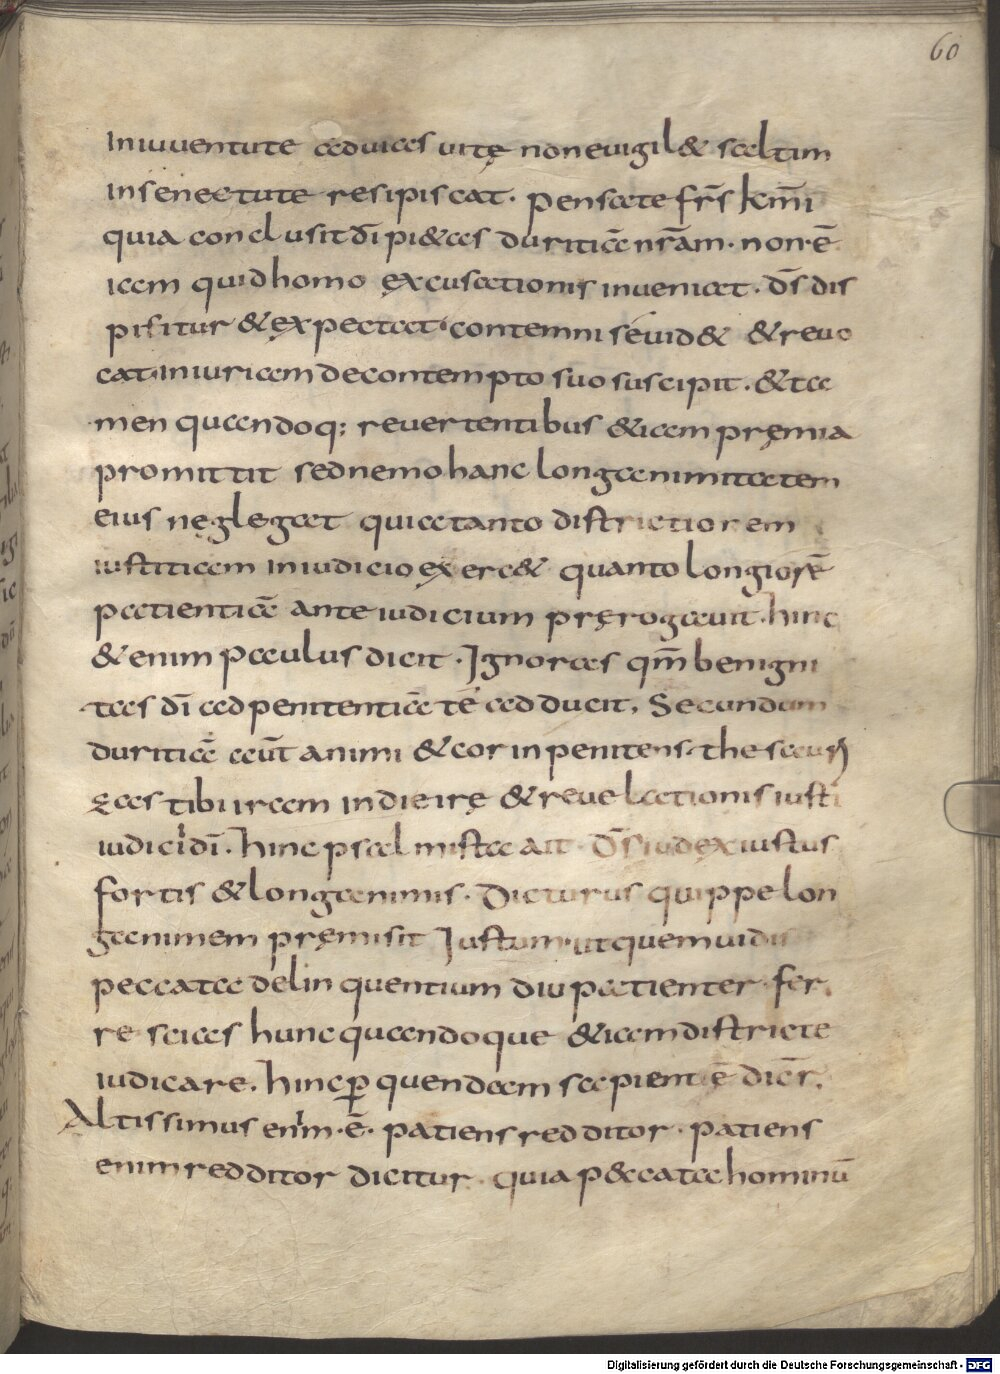 60
Iniuuentute aduices uitę non euigil& saltim
insenectute resipiscat. pensate fr̄s km̄i
quia conclusit dī pi&as duritiā nr̄am. non ē
iam quid homo excusationis inueniat. dn̄s dis
pisitur & expectat. contemni se uid& & reuo
cat iniuriam de contempto suo suscipit. & ta
men quandoq; reuertentibus &iam pręmia
promittit sed nemo hanc longanimitatem
eius neglegat quia tanto districtiorem
iustitiam in iudicio exerc& quanto longiorē
patientiā ante iudicium pręrogauit. hinc
&enim paulus dicit. Ignoras qm̄ benigni
tas dī ad penitentiā te adducit. Secundum
duritiā aūt animi & cor inpenitens. thesauri
zas tibi iram in die irę & reuelationis iusti
iudicii dī. hinc psalmista ait. Ds̄ iudex iustus
fortis & longanimis. Dicturus quippe lon
ganimem pręmisit Iustum. ut quem uidis
peccata delinquentium diu patienter fer
re scias hunc quandoque &iam districte
iudicare. hinc ꝑ quendam sapientē dicr̄.
Altissimus enim. ē. patiens redditor. patiens
enim redditor dicitur. quia p&cata hominū
Digitalisierung gefördert durch die Deutsche Forschungsgemeinschaft - DFG